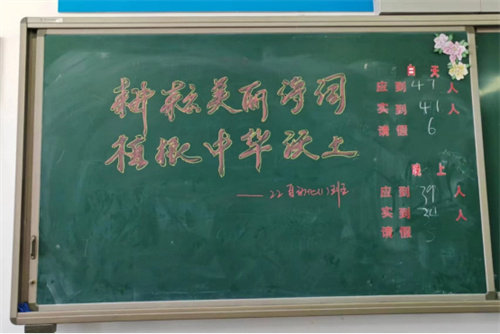 耕耘美丽诗词
植根中华沃土
——22自动化(1)班
白天
应到47人
实到41人
请假6
晚上
应到39人
实到 人
请假